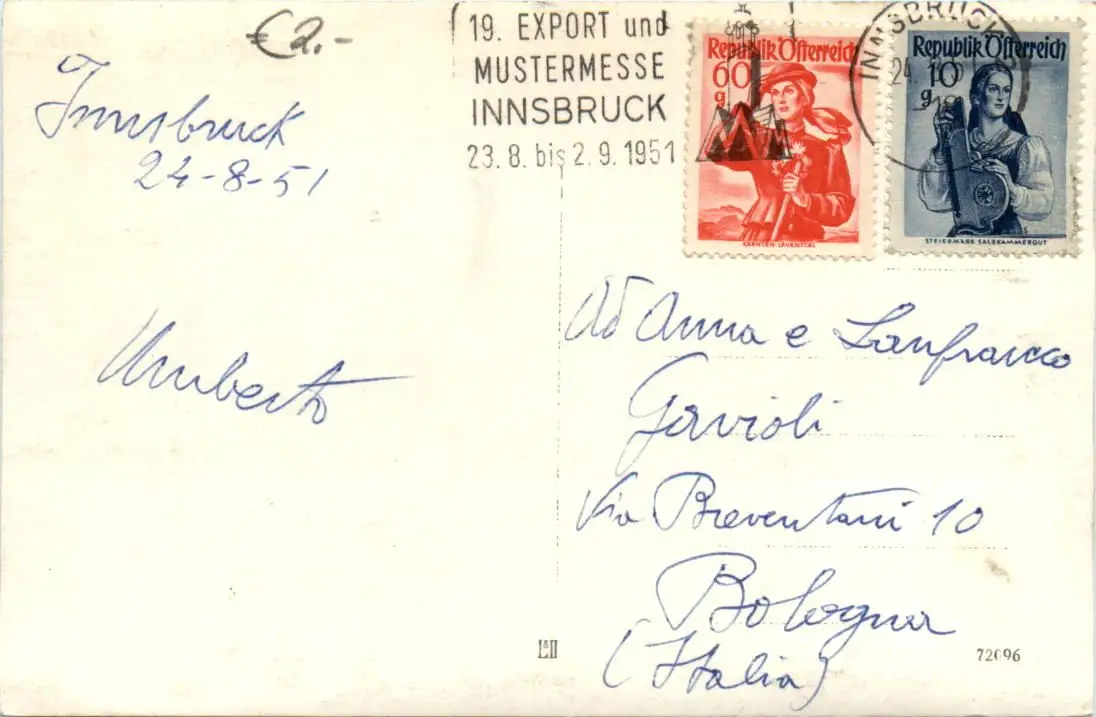 €2.-
Innsbruck
24-8-51
Umberto
19. EXPORT und
MUSTERMESSE
INNSBRUCK
23.8. bis 2.9. 1951
Republik Österreich
60
g
KÄRNTEN LAVANTTAL
INNSBRUCK
24
Republik Österreich
10
g
STEIERMARK SALZKAMMERGUT
Ad Anna e Lanfranco
Gavioli
Via Breventani 10
Bologna
(Italia)
72096